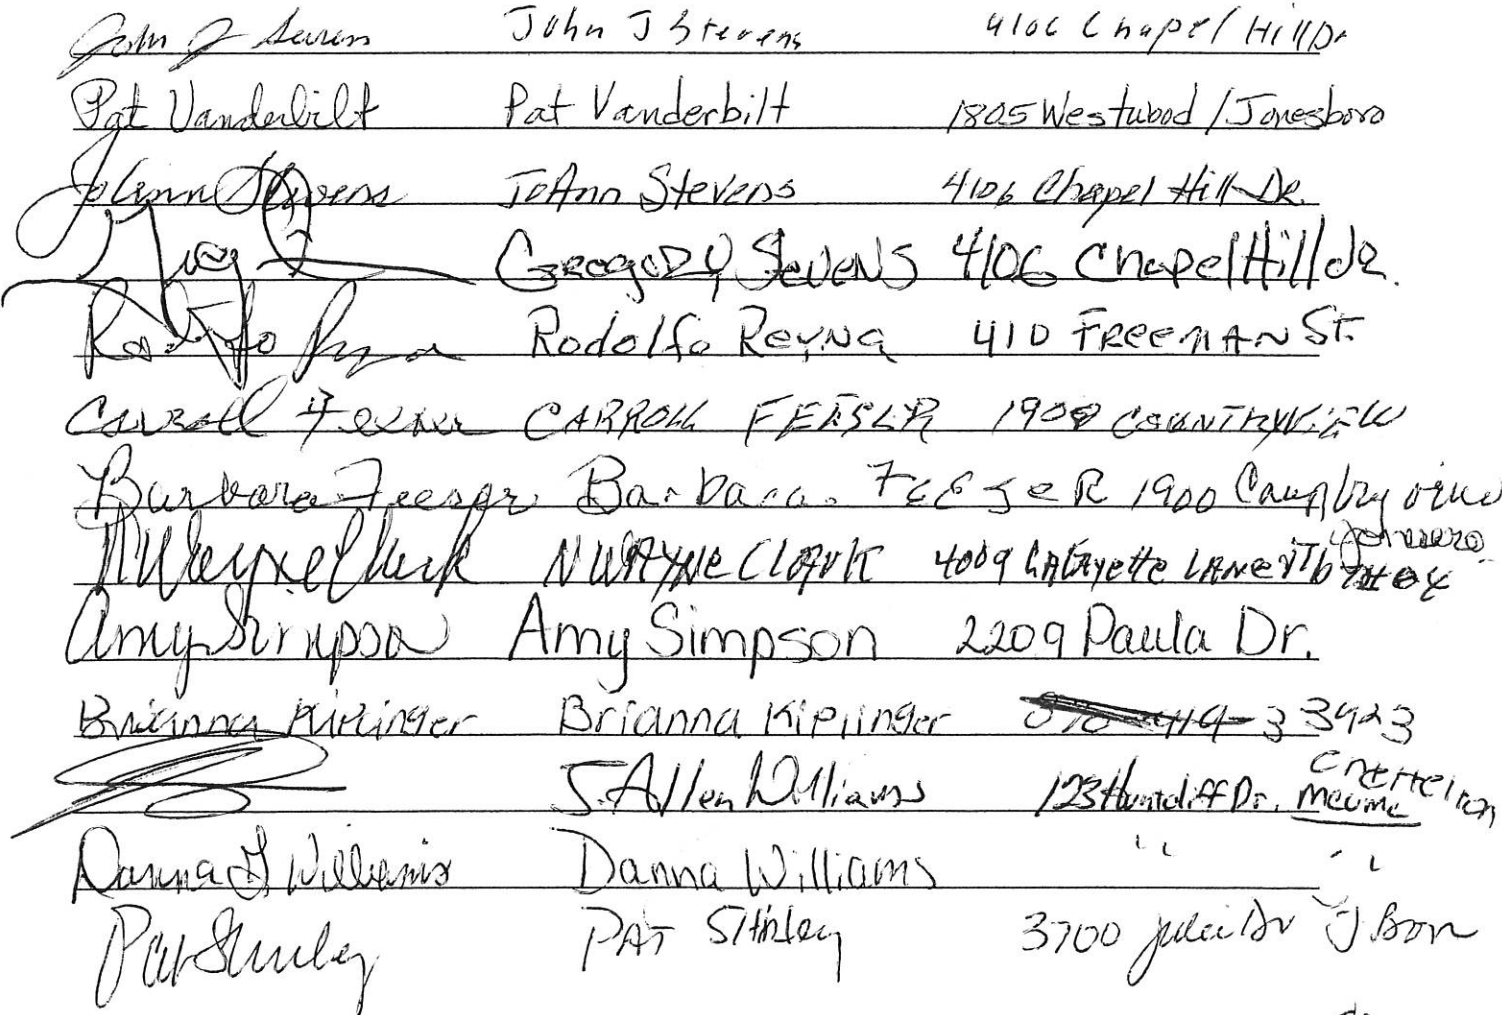 John J Stevens John J Stevens 4106 Chapel Hill Dr
Pat Vanderbilt Pat Vanderbilt 1805 Westwood / Jonesboro
JoAnn Stevens JoAnn Stevens 4106 Chapel Hill Dr.
Greg Gregory Stevens 4106 Chapel Hill dr.
Rodolfo Reyna Rodolfo Reyna 410 Freeman St.
Carroll Feeser CARROLL FEESER 1900 COUNTRYVIEW
Barbara Feeser Barbara FEESER 1900 Country view
N Wayne Clark N WAYNE CLARK 4009 LaFayette LANE
Amy Simpson Amy Simpson 2209 Paula Dr.
Brianna Kiplinger Brianna Kiplinger 3423
J. Allen Williams 123 Huntcliff Dr.
Danna G Williams Danna Williams " "
Pat Shirley PAT Shirley 3700 Julie Dr J Boro